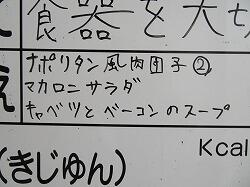 食器を大切
ナポリタン風肉団子②
マカロニサラダ
キャベツとベーコンのスープ
Kcal
(きじゅん)